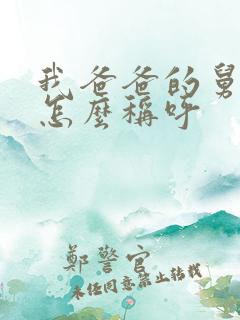 我爸爸的舅
怎麼稱呼
鄭警官
未任同意禁止转载